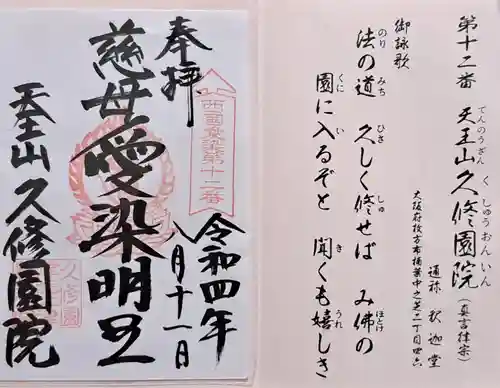 第十二番 天王山久修園院（真言律宗）
てんのうざん く しゅうおんいん
大阪府枚方市楠葉中之芝二丁目四六
通称 釈迦堂
御詠歌
法の道 久しく修せば み佛の
のり みち ひさ しゅ ほとけ
園に入るぞと 聞くも嬉しき
くに い き うれ
奉拝
西國愛染第十二番
令和四年
八月十一日
慈母愛染明王
天王山久修園院
久修園